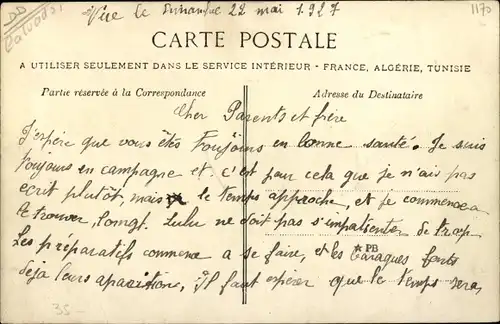 Vue le Dimanche 22 mai 1927
1170
DD
Calvados
CARTE POSTALE
A UTILISER SEULEMENT DANS LE SERVICE INTÉRIEUR - FRANCE, ALGÉRIE, TUNISIE
Partie réservée à la Correspondance
Adresse du Destinataire
Cher Parents et frère
J'espère que vous êtes toujours en bonne santé. Je suis
toujours en campagne et c'est pour cela que je n'ais pas
ecrit plutôt, mais le temps approche, et je commence a
le trouver longt. Lulu ne doit pas s'impatienter de trop
Les préparatifs commence a se faire, et les baraques font
PB
deja leurs aparitions, Il faut espérer que le temps sera,
35 -